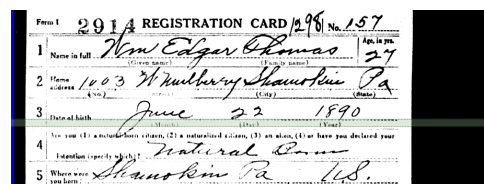 Form 1 2914 REGISTRATION CARD 1298 No. 157
1 Name in full Wm Edgar Thomas Age, in yrs. 27
(Given name) (Family name)
2 Home address 1003 W Mulberry Shamokin Pa
(No.) (City) (State)
3 Date of birth June 22 1890
(Month) (Day) (Year)
4 Are you (1) a natural-born citizen, (2) a naturalized citizen, (3) an alien, (4) or have you declared your
intention (specify which)? Natural Born
5 Where were you born? Shamokin Pa U.S.